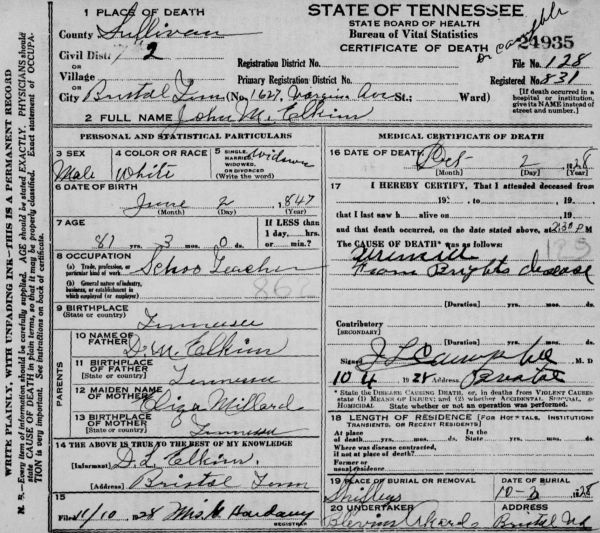 1 PLACE OF DEATH
County Sullivan
Civil Dist. 2
OR
Village
OR
City Bristol Tenn (No. 1627 Virginia Ave St.; Ward)
2 FULL NAME John M. Elkins
STATE OF TENNESSEE
STATE BOARD OF HEALTH
Bureau of Vital Statistics
CERTIFICATE OF DEATH
24935
Registration District No.
File No. 128
Primary Registration District No.
Registered No. 831
[If death occurred in a
hospital or institution,
give its NAME instead of
street and number.]
WRITE PLAINLY, WITH UNFADING INK—THIS IS A PERMANENT RECORD
N. B.—Every item of information should be carefully supplied. AGE should be stated EXACTLY. PHYSICIANS should
state CAUSE OF DEATH in plain terms, so that it may be properly classified. Exact statement of OCCUPA-
TION is very important. See instructions on back of certificate.
PERSONAL AND STATISTICAL PARTICULARS
3 SEX
Male
4 COLOR OR RACE
White
5 SINGLE,
MARRIED,
WIDOWED,
OR DIVORCED
(Write the word)
6 DATE OF BIRTH
June 2 1847
(Month) (Day) (Year)
7 AGE
81 yrs. 3 mos. 0 ds.
If LESS than
1 day, hrs.
or min.?
8 OCCUPATION
(a) Trade, profession, or
particular kind of work
School Teacher
(b) General nature of industry,
business, or establishment in
which employed (or employer)
9 BIRTHPLACE
(State or country)
Tennessee
PARENTS
10 NAME OF
FATHER
D. M. Elkins
11 BIRTHPLACE
OF FATHER
(State or country)
Tennessee
12 MAIDEN NAME
OF MOTHER
Eliza Millard
13 BIRTHPLACE
OF MOTHER
(State or country)
Tennessee
14 THE ABOVE IS TRUE TO THE BEST OF MY KNOWLEDGE
(Informant) D. L. Elkins
(Address) Bristol Tenn
15
Filed 11/10 1928 Mrs.
REGISTRAR
MEDICAL CERTIFICATE OF DEATH
16 DATE OF DEATH
2 1928
(Month) (Day) (Year)
17 I HEREBY CERTIFY, That I attended deceased from
19 , to , 19
that I last saw h alive on , 19
and that death occurred, on the date stated above, at 2:30 P M
The CAUSE OF DEATH* was as follows:
From Brights disease
(Duration) yrs. mos. ds.
Contributory
(SECONDARY)
(Duration) yrs. mos. ds.
Signed M. D
10 4 1928 Address Bristol
* State the DISEASE CAUSING DEATH, or, in deaths from VIOLENT CAUSES
state (1) MEANS OF INJURY; and (2) whether ACCIDENTAL, SUICIDAL, or
HOMICIDAL. State whether or not an operation was performed.
18 LENGTH OF RESIDENCE (FOR HOSPITALS, INSTITUTIONS
TRANSIENTS, OR RECENT RESIDENTS)
At place
of death yrs. mos. ds.
In the
State yrs. mos. ds.
Where was disease contracted,
if not at place of death?
Former or
usual residence
19 PLACE OF BURIAL OR REMOVAL
DATE OF BURIAL
1928
20 UNDERTAKER
Blevins
ADDRESS
Bristol